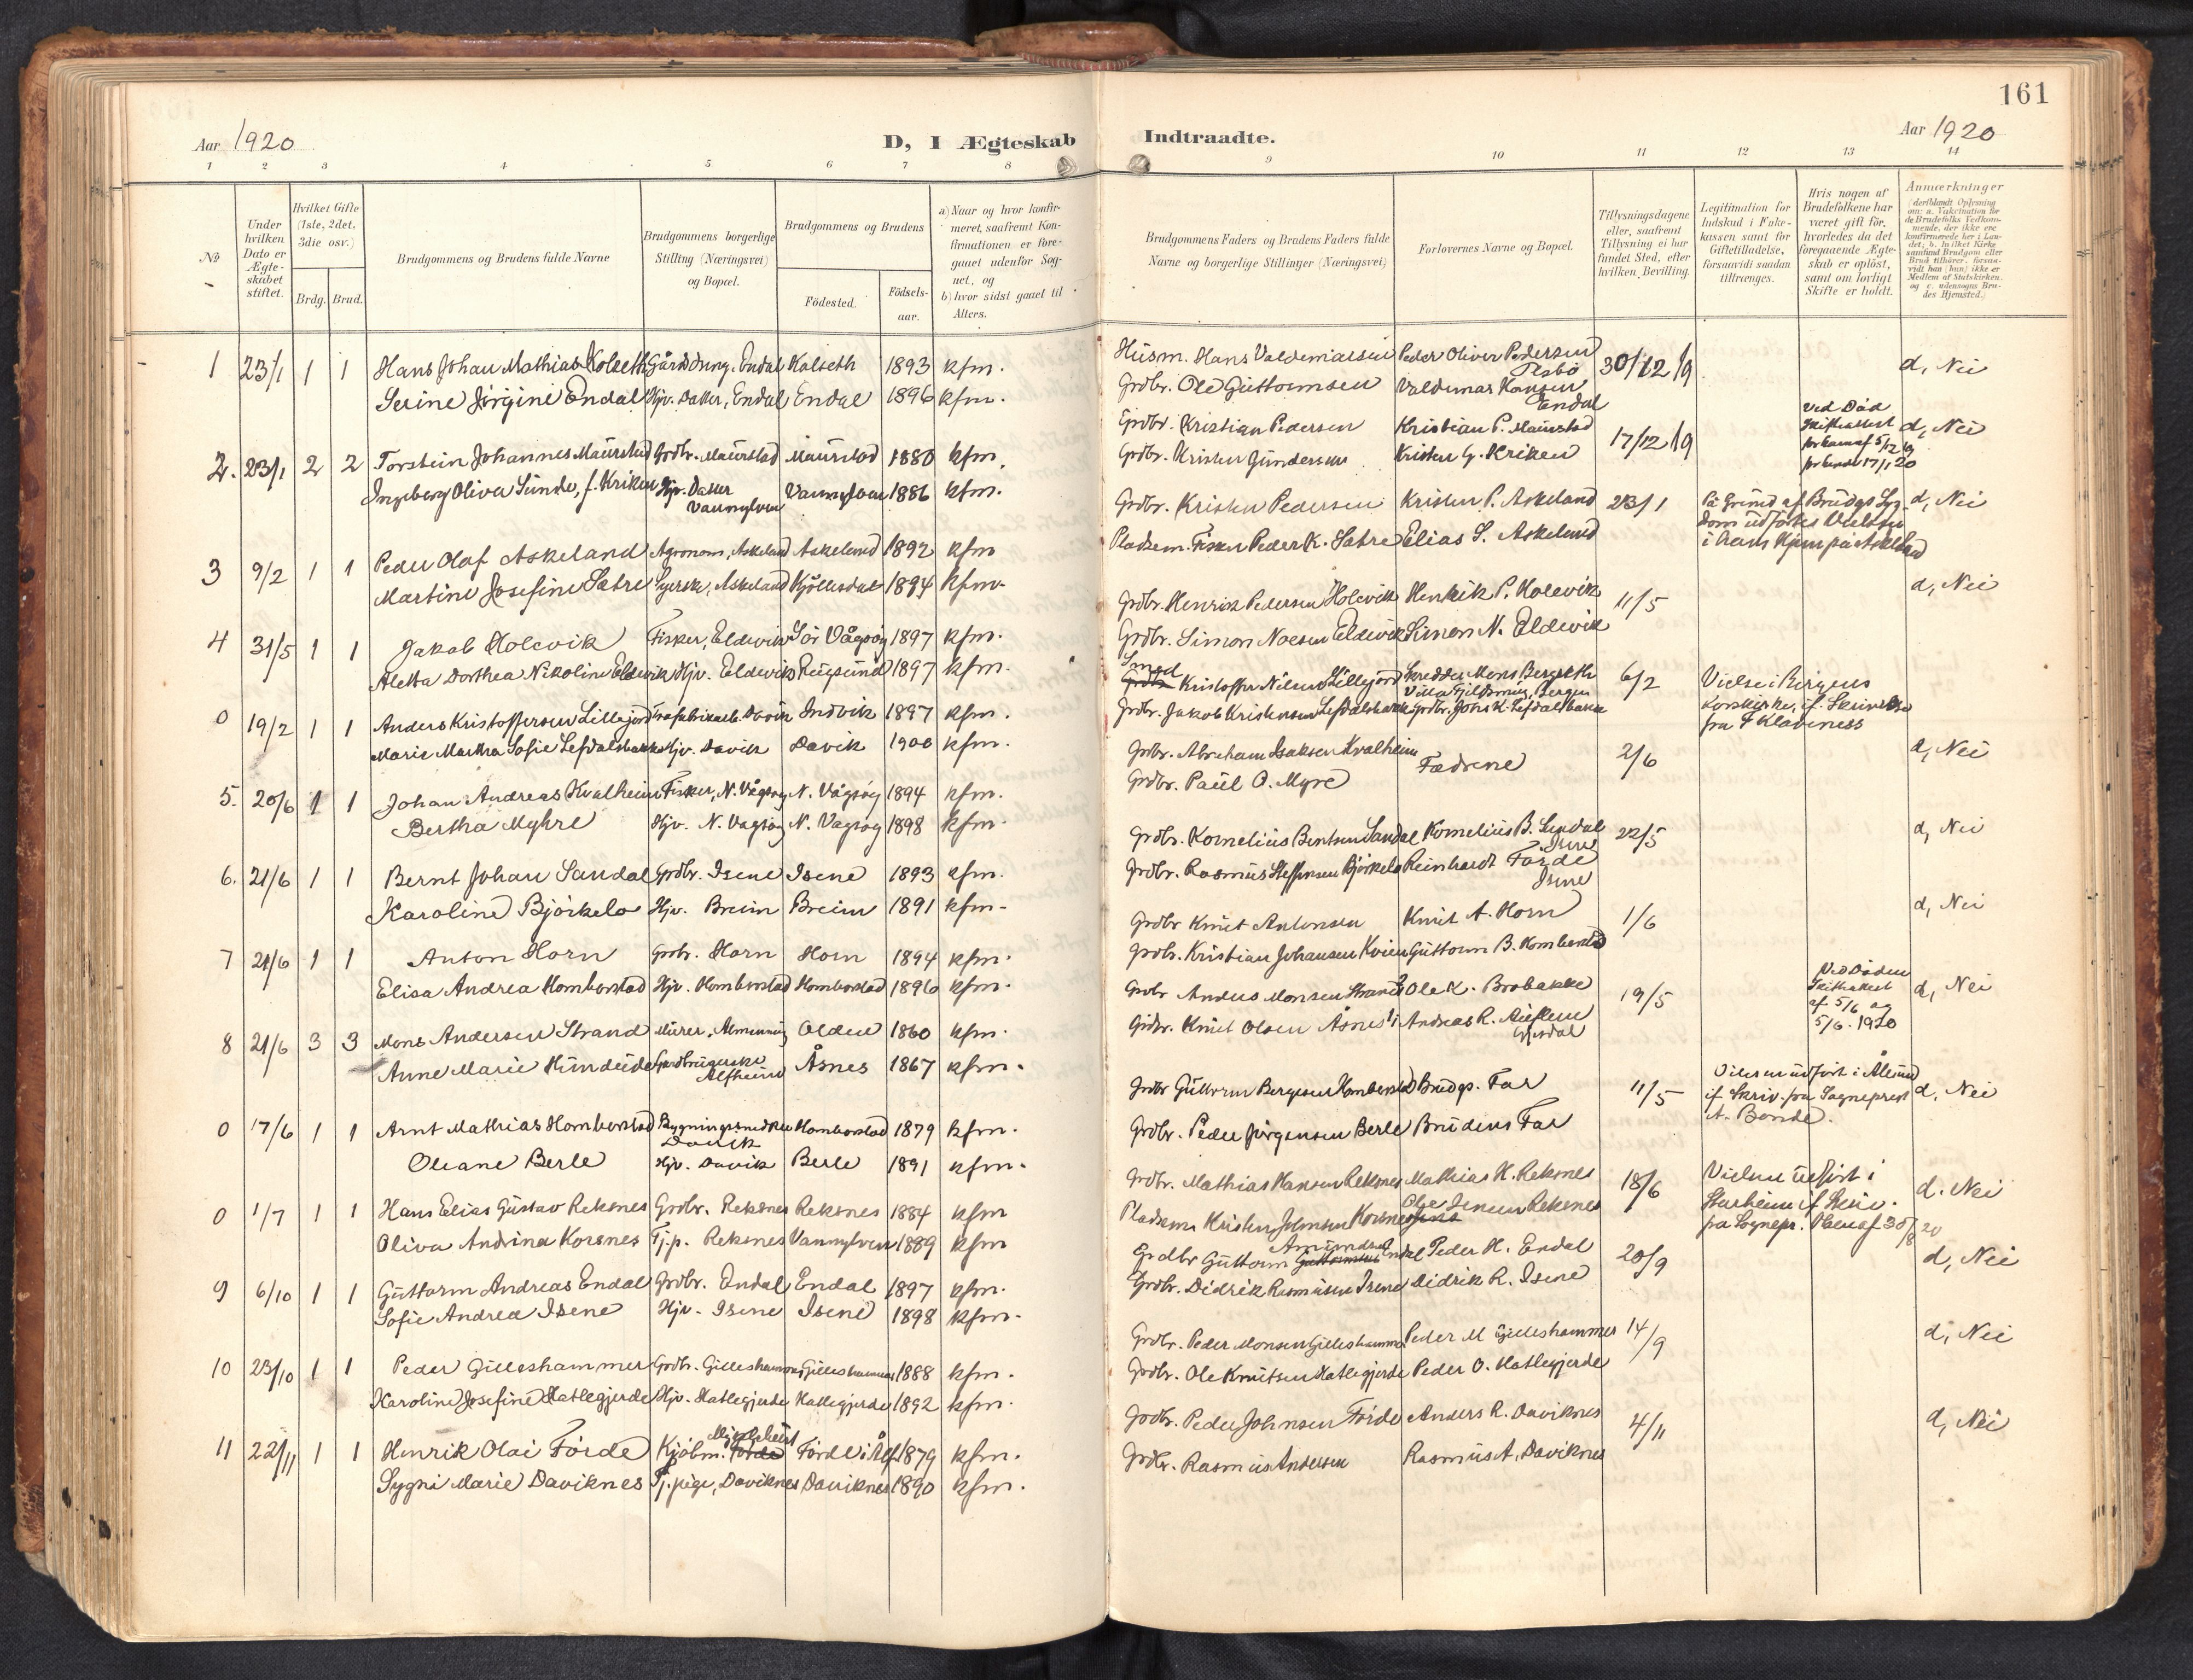 161
Aar 1920
D, I Ægteskab Indtraadte.
Aar 1920
1 2 3 4 5 6 7 8 9 10 11 12 13 14
No
Under hvilken Dato er Ægteskabet stiftet.
Hvilket Gifte (1ste, 2det, 3die osv.)
Brdg. Brud.
Brudgommens og Brudens fulde Navne
Brudgommens borgerlige Stilling (Næringsvei) og Bopæl.
Brudgommens og Brudens
Fødested. Fødselsaar.
a) Naar og hvor konfirmeret, saafremt Konfirmationen er foregaaet udenfor Sognet, og
b) hvor sidst gaaet til Alters.
Brudgommens Faders og Brudens Faders fulde Navne og borgerlige Stillinger (Næringsvei)
Forlovernes Navne og Bopæl.
Tillysningsdagene eller, saafremt Tillysning ei har fundet Sted, efter hvilken Bevilling.
Legitimation for Indskud i Enkekassen samt for Giftetilladelse, forsaavidt saadan tiltrænges.
Hvis nogen af Brudefolkene har været gift før, hvorledes da det foregaaende Ægteskab er opløst, samt om lovligt Skifte er holdt.
Anmærkninger (deriblandt Oplysning om: a. Vakcination for de Brudefolks Vedkommende, der ikke ere konfirmerede her i Landet; b. hvilket Kirkesamfund Brudgom eller Brud tilhører, forsaavidt han (hun) ikke er Medlem af Statskirken, og c. udensogns Brudes Hjemsted.)
1 23/1 1 1 Hans Johan Mathias Kolseth Gårdsbung. Endal Kolseth 1893 kfm. Husm. Hans Valdemarsen Peder Oliver Pedersen 30/12 19 d, Nei
Serine Jørgine Endal Hjv. Datter, Endal Endal 1896 kfm. Grdbr. Ole Guttormsen Valdemar Hansen Endal
2. 23/1 2 2 Torstein Johannes Maurstad Grdbr. Maurstad Maurstad 1880 kfm. Grdbr. Kristian Pedersen Kristian P. Maurstad 17/12 19 Ved Død Skifteattest for ham af 5/12 19 for hende 17/1 20 d, Nei
Ingeborg Oliva Sunde, f. Kriken Hjv. Datter Vannylven Vannylven 1886 kfm. Grdbr. Kristen Gundersen Kristen G. Kriken
3 9/2 1 1 Peder Olaf Askeland Agronom, Askeland Askeland 1892 kfm Grdbr. Kristen Pedersen Kristen P. Askeland 23/1 På Grund af Brudgs Sygdom udførtes Vielsen i hans Hjem på Askeland d, Nei
Martine Josefine Sætre Syerske, Askeland Kjøllesdal 1894 kfm. Pladsem. Fisker Peder K. Sætre Elias S. Askeland
4 31/5 1 1 Jakob Holevik Fisker, Eldevik Sør Vågsøy 1897 kfm. Grdbr. Henrik Pedersen Holevik Henrik P. Holevik 11/5 d, Nei
Aletta Dorthea Nikoline Eldevik Hjv. Eldevik Rugsund 1897 kfm. Grdbr. Simon Noesen Eldevik Simon N. Eldevik
0 19/2 1 1 Anders Kristoffersen Lillejord Træfabrikarb. Davik Indvik 1897 kfm. Smed Kristoffer Nilsen Lillejord Skredder Mons Bergseth Bergen 6/2 Vielse i Bergens Korskirke, if. Skrivelse fra F Klaveness
Marie Martha Sofie Lefdalsbakke Hjv. Davik Davik 1900 kfm. Grdbr. Jakob Kristensen Lefdalsbakke Grdbr. Johs K. Lefdalsbakke
5. 20/6 1 1 Johan Andreas Kvalheim Fisker, N. Vågsøy N. Vågsøy 1894 kfm. Grdbr. Abraham Isaksen Kvalheim Fædrene 2/6 d, Nei
Bertha Myhre Hjv. N. Vagsøy N. Vagsøy 1898 kfm. Grdbr. Paul O. Myre
6. 21/6 1 1 Bernt Johan Sandal Grdbr. Isene Isene 1893 kfm. Grdbr. Kornelius Bentsen Sandal Kornelius B. Sandal Isene 22/5 d, Nei
Karoline Bjørkelo Hjv. Breim Breim 1891 kfm. Grdbr. Rasmus Steffensen Bjørkelo Reinhardt Førde Isene
7 21/6 1 1 Anton Horn Grdbr. Horn Horn 1894 kfm. Grdbr Knut Antonsen Knut A. Horn 1/6 d, Nei
Elisa Andrea Homborstad Hjv. Homborstad Homborstad 1896 kfm. Grdbr. Kristian Johansen Kvien Guttorm B. Homborstad
8 21/6 3 3 Mons Andersen Strand Murer, Almenning Olden 1860 kfm. Grdbr Anders Monsen Strand Ole K. Brobakke 19/5 Ved Døden Skifteattest af 5/6 og 5/6. 1920 d, Nei
Anne Marie Hundeide Gardbrugerske Alfheim Åsnes 1867 kfm. Grdbr. Knut Olsen Åsnes Andreas R.
0 17/6 1 1 Arnt Mathias Homborstad Bygningssnedker Davik Homborstad 1879 kfm. Grdbr Guttorm Bergesen Homborstad Brudgs. Far 11/5 Vielsen udført i Ålesund if. Skriv. fra Sogneprest A. Bonde. d, Nei
Oliane Berle Hjv. Davik Berle 1891 kfm. Grdbr. Peder Jørgensen Berle Brudens Far
0 1/7 1 1 Hans Elias Gustav Reksnes Grdbr. Reksnes Reksnes 1884 kfm Grdbr. Mathias Hansen Reksnes Mathias H. Reksnes 18/6 Vielsen udført i Starheim if. Skriv. fra Sognepr. af 30/8 20 d. Nei
Oliva Andrina Korsnes Tj.p. Reksnes Vannylven 1889 kfm Pladsem Kristen Johnsen Korsnes Ole Jensen Reksnes
9 6/10 1 1 Guttorm Andreas Endal Grdbr. Endal Endal 1897 kfm. Grdbr Guttorm Amundsen Endal Peder H. Endal 20/9 d, Nei
Sofie Andrea Isene Hjv. Isene Isene 1898 kfm. Grdbr. Didrik Rasmusen Isene Didrik R. Isene
10 23/10 1 1 Peder Gilleshammer Grdbr. Gilleshammer Gilleshammer 1888 kfm. Grdbr. Peder Monsen Gilleshammer Peder M Gilleshammer 14/9 d, Nei
Karoline Josefine Hatlegjerde Hjv. Hatlegjerde Hatlegjerde 1892 kfm. Grdbr. Ole Knutsen Hatlegjerde Peder O. Hatlegjerde
11 22/11 1 1 Henrik Olai Førde Kjøbm. Førde Førde i Ålf. 1879 kfm. Grdbr. Peder Johnsen Førde Anders R. Daviknes 4/11 d, Nei
Sygni Marie Daviknes Tj.pige, Daviknes Daviknes 1890 kfm. Grdbr. Rasmus Andersen Rasmus A. Daviknes